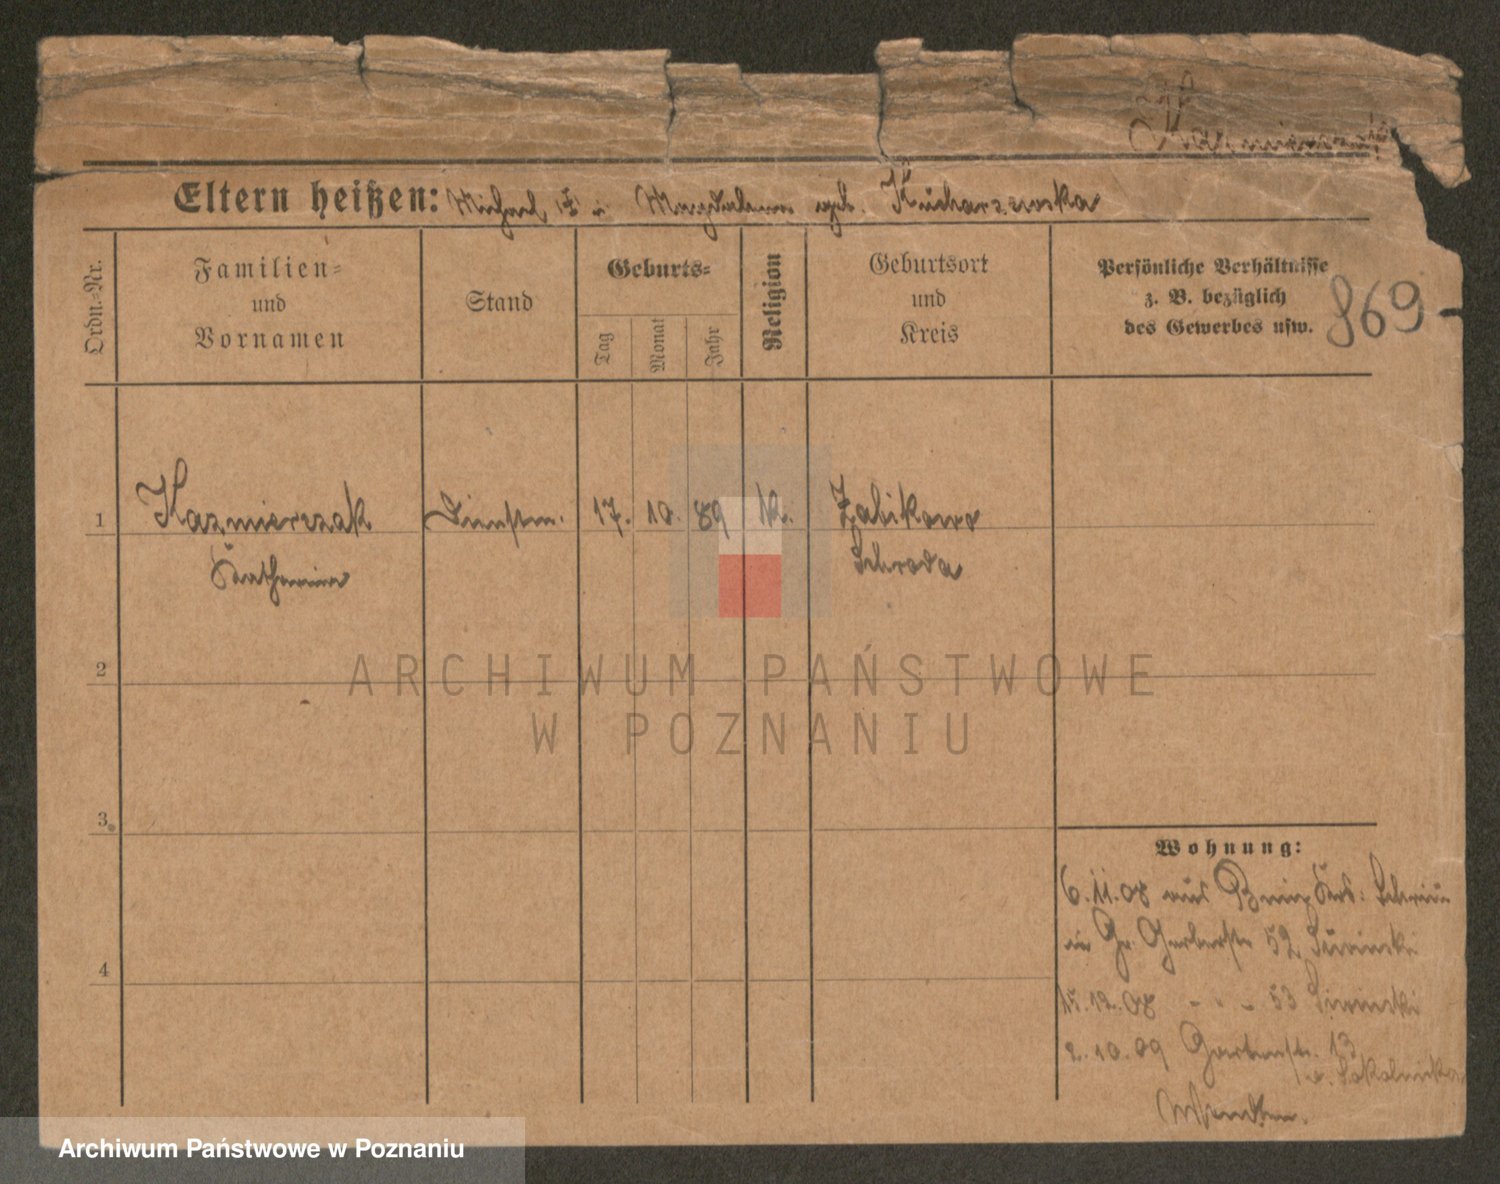 Kazmierczak
Eltern heißen: Michael u. Magdalena geb. Kucharzewska
Ordn.-Nr.
Familien-
und
Vornamen
Stand
Geburts-
Tag
Monat
Jahr
Religion
Geburtsort
und
Kreis
Persönliche Verhältnisse
z. B. bezüglich
des Gewerbes usw.
869
1 Kazmierczak Dienstm. 17. 10. 89 k. Zabikowo
Katharina Schroda
2
3
4
Wohnung:
6.11.08 aus Bnin Krs. Schrim
in Gr. Gerberstr 52
15.12.08 - - - 53
2.10.09 Gartenstr. 13
b. Sokolnicka
Wenden.
ARCHIWUM PAŃSTWOWE
W POZNANIU
Archiwum Państwowe w Poznaniu